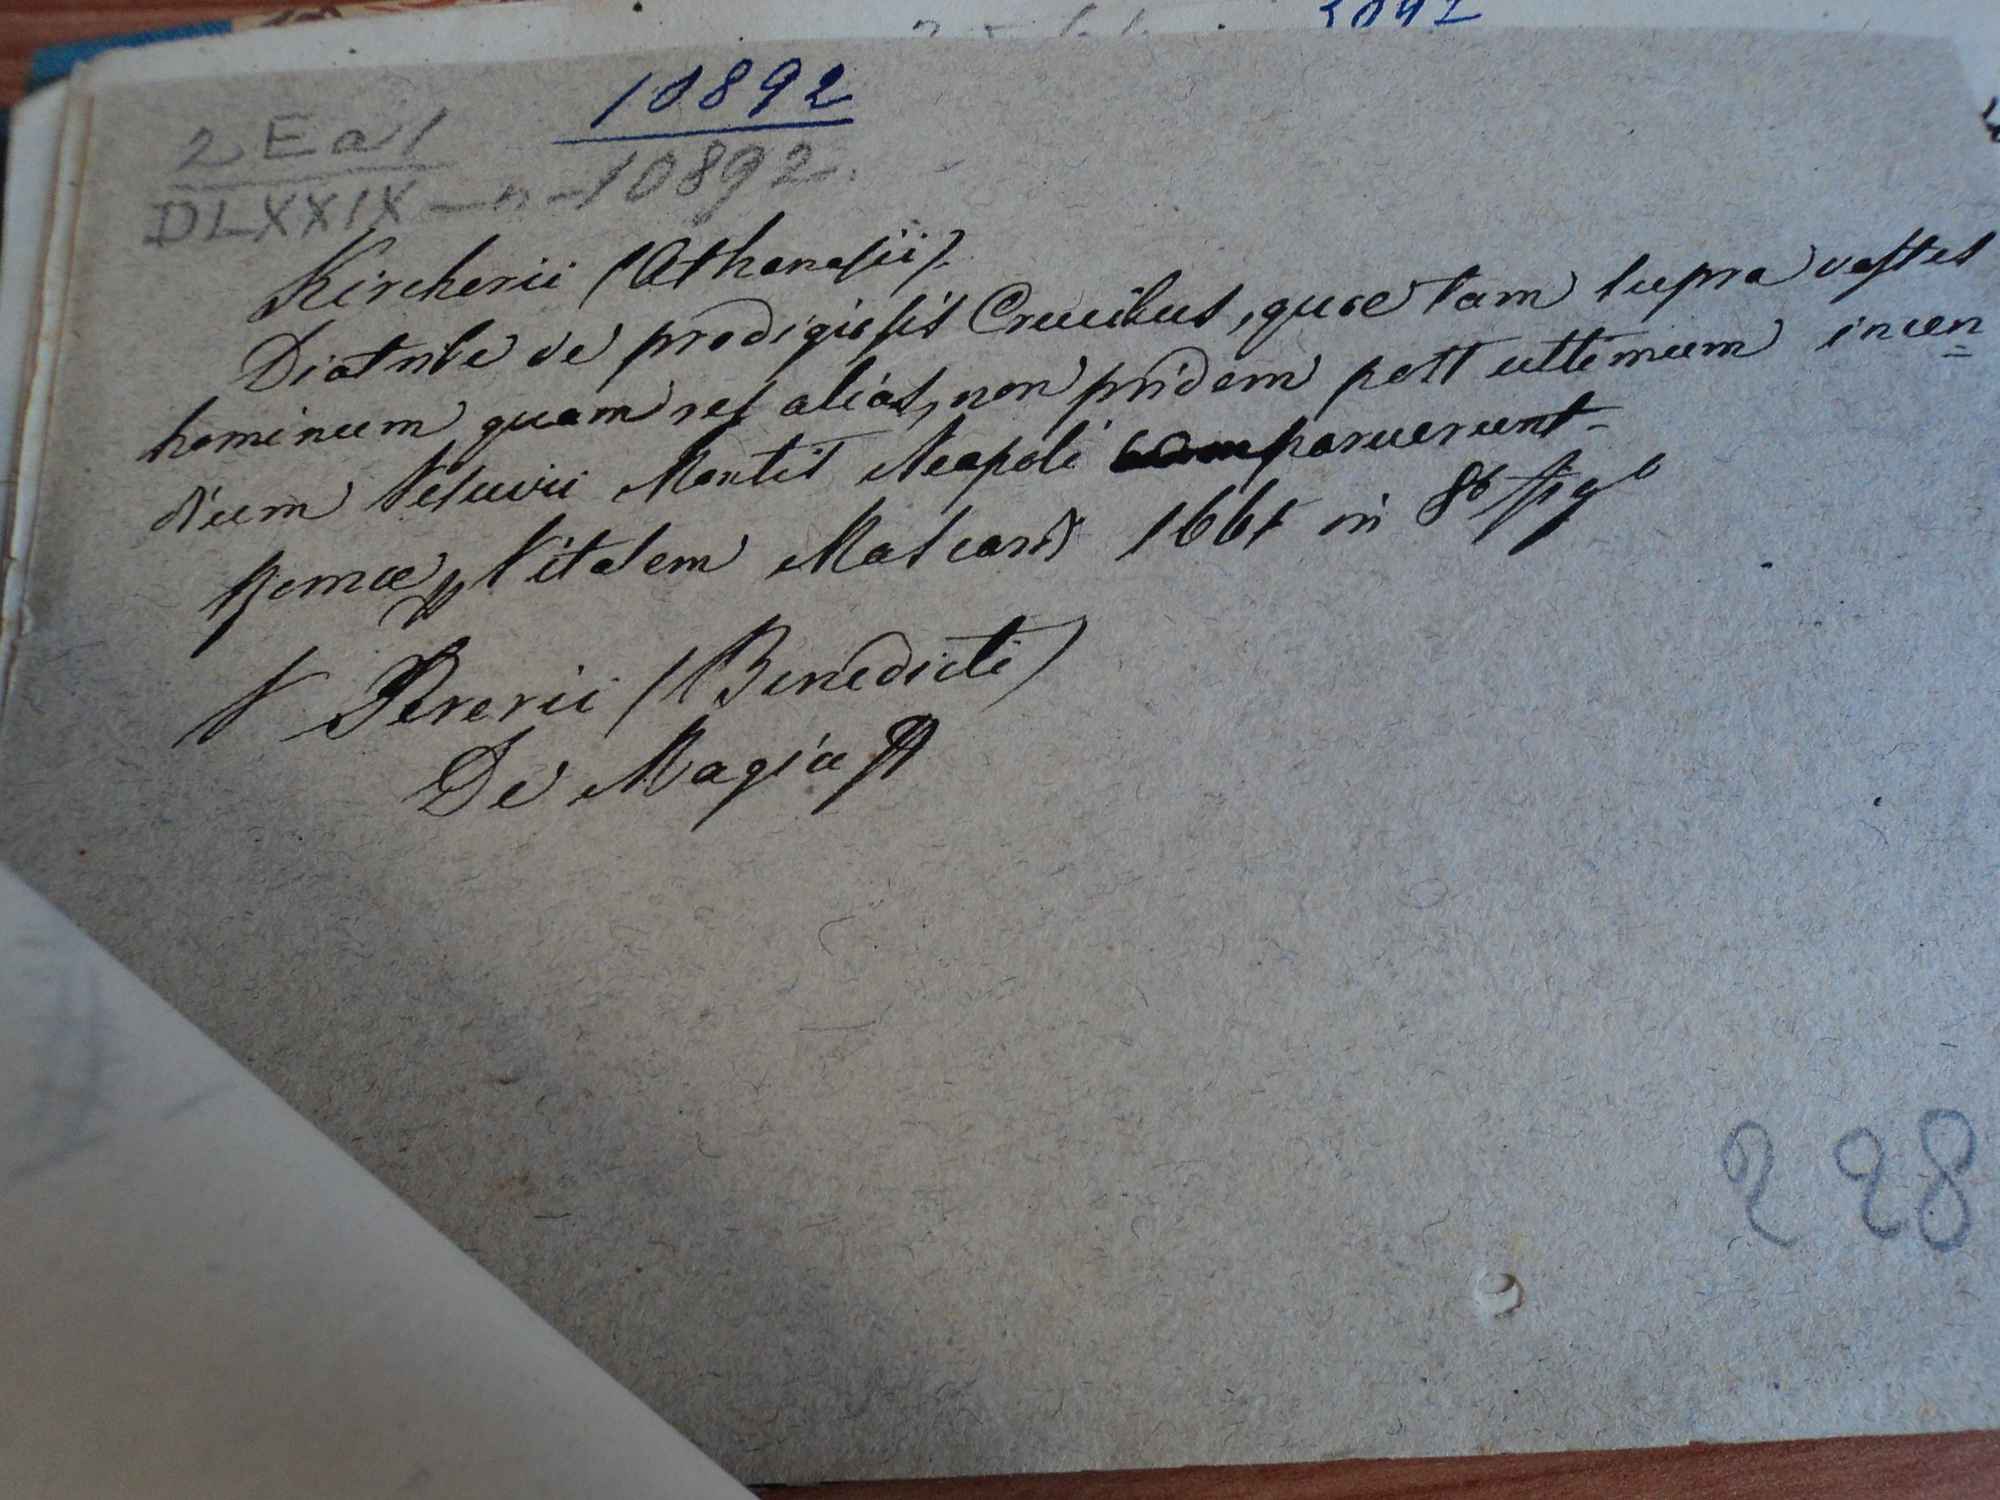 10892
2 Ea1
DLXXIX - n - 10892.
Kircherii (Athanasii).
Diatribe de prodigiosis Crucibus, quae tam supra vestes
hominum quam res alias, non pridem post ultimum incen=
dium Vesuvii Montis Neapoli comparuerunt-
Romae, Vitalem Mascardi 1661 in 8º
V Pererii (Benedicti)
De Magia
228